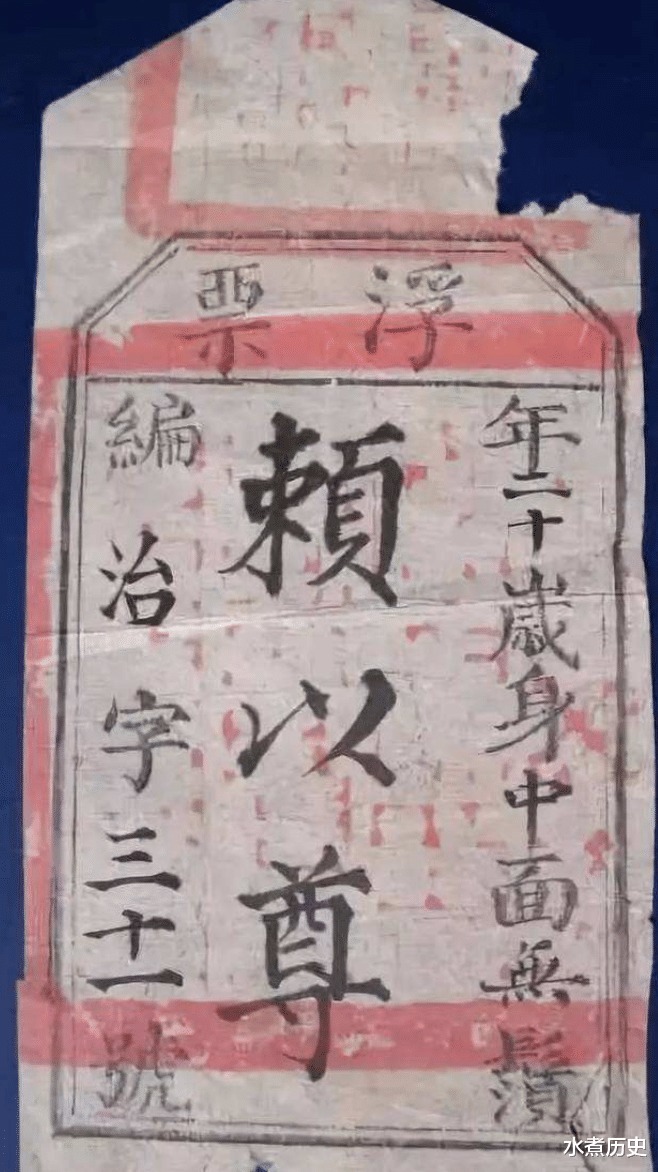 浮票
年二十歲身中面無鬚
賴以尊
編治字三十一號
水煮历史